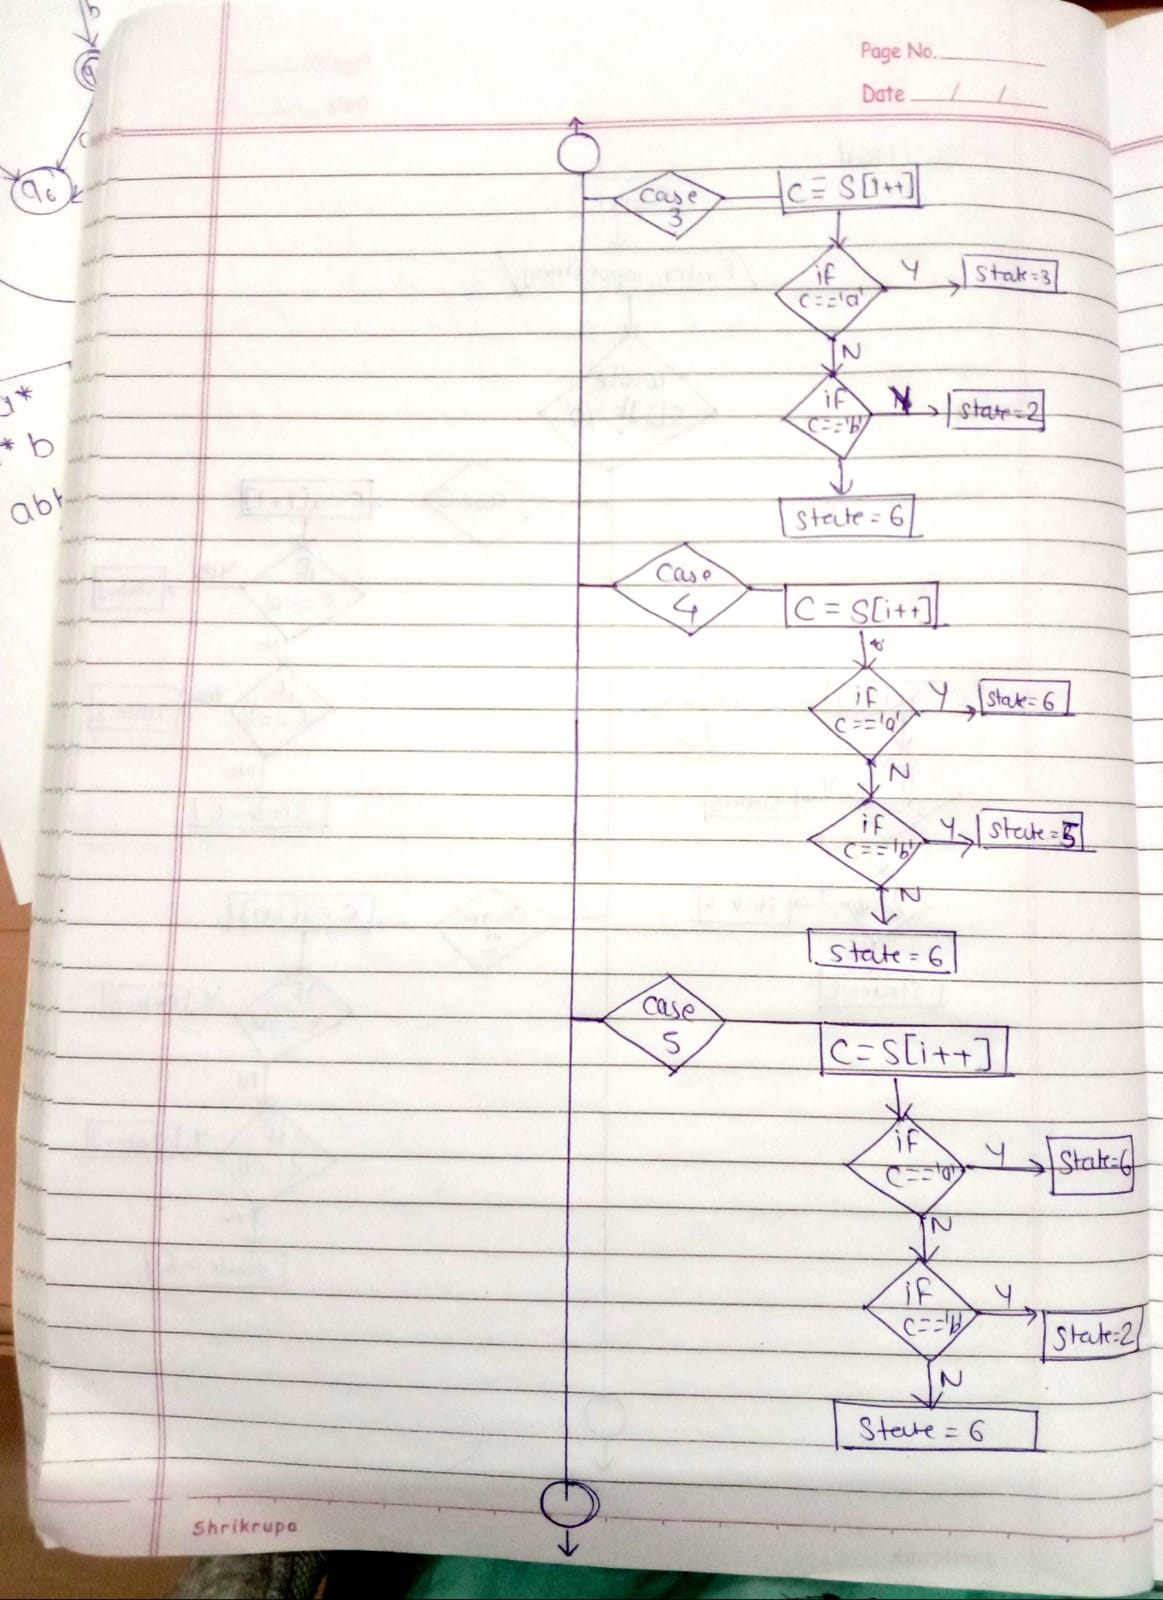 Page No.
Date / /
b
q6
y*
* b
case
3
C = S[i++]
if
c=='a'
Y
State=3
N
if
c=='b'
state=2
state = 6
case
4
C = S[i++]
if
c=='a'
Y
state=6
N
if
c=='b'
Y
state=5
N
state = 6
case
5
C = S[i++]
if
c=='a'
Y
State=6
N
if
c=='b'
Y
State=2
N
State = 6
Shrikrupa